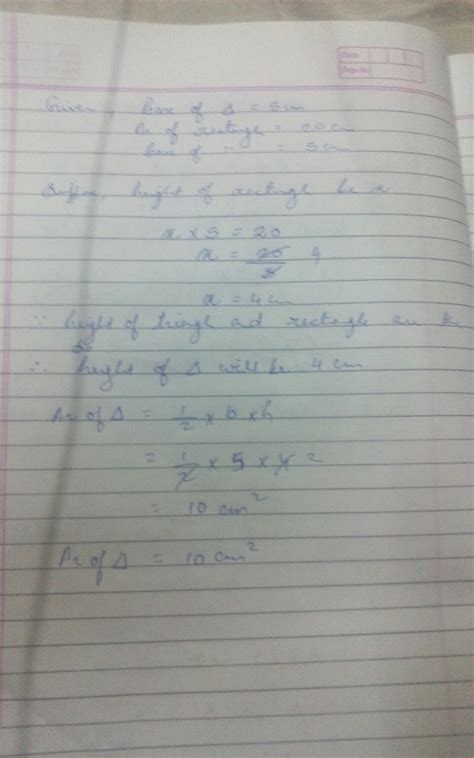 Date
Page No.
Given, base of Δ = 5cm
Ar of rectangle = 20 cm
base of " = 5cm
Suppose, height of rectangle be x
x × 5 = 20
x = 20/5 4
x = 4cm
∵ height of triangle and rectangle are
∴ height of Δ will be 4 cm
Ar of Δ = 1/2 × b × h
= 1/2 × 5 × 4 2
= 10 cm²
Ar of Δ = 10 cm²